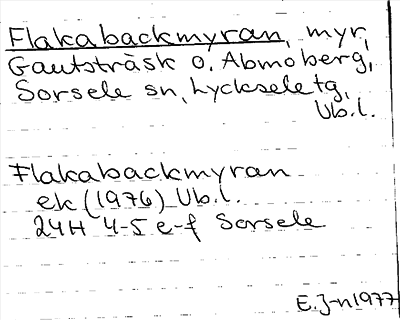 Flakabackmyran, myr,
Gautsträsk o. Abmoberg,
Sorsele sn, Lycksele tg,
Vb.l.
Flakabackmyran
ek (1976) Vb.l.
24H 4-5 e-f Sorsele
E.J-n 1977